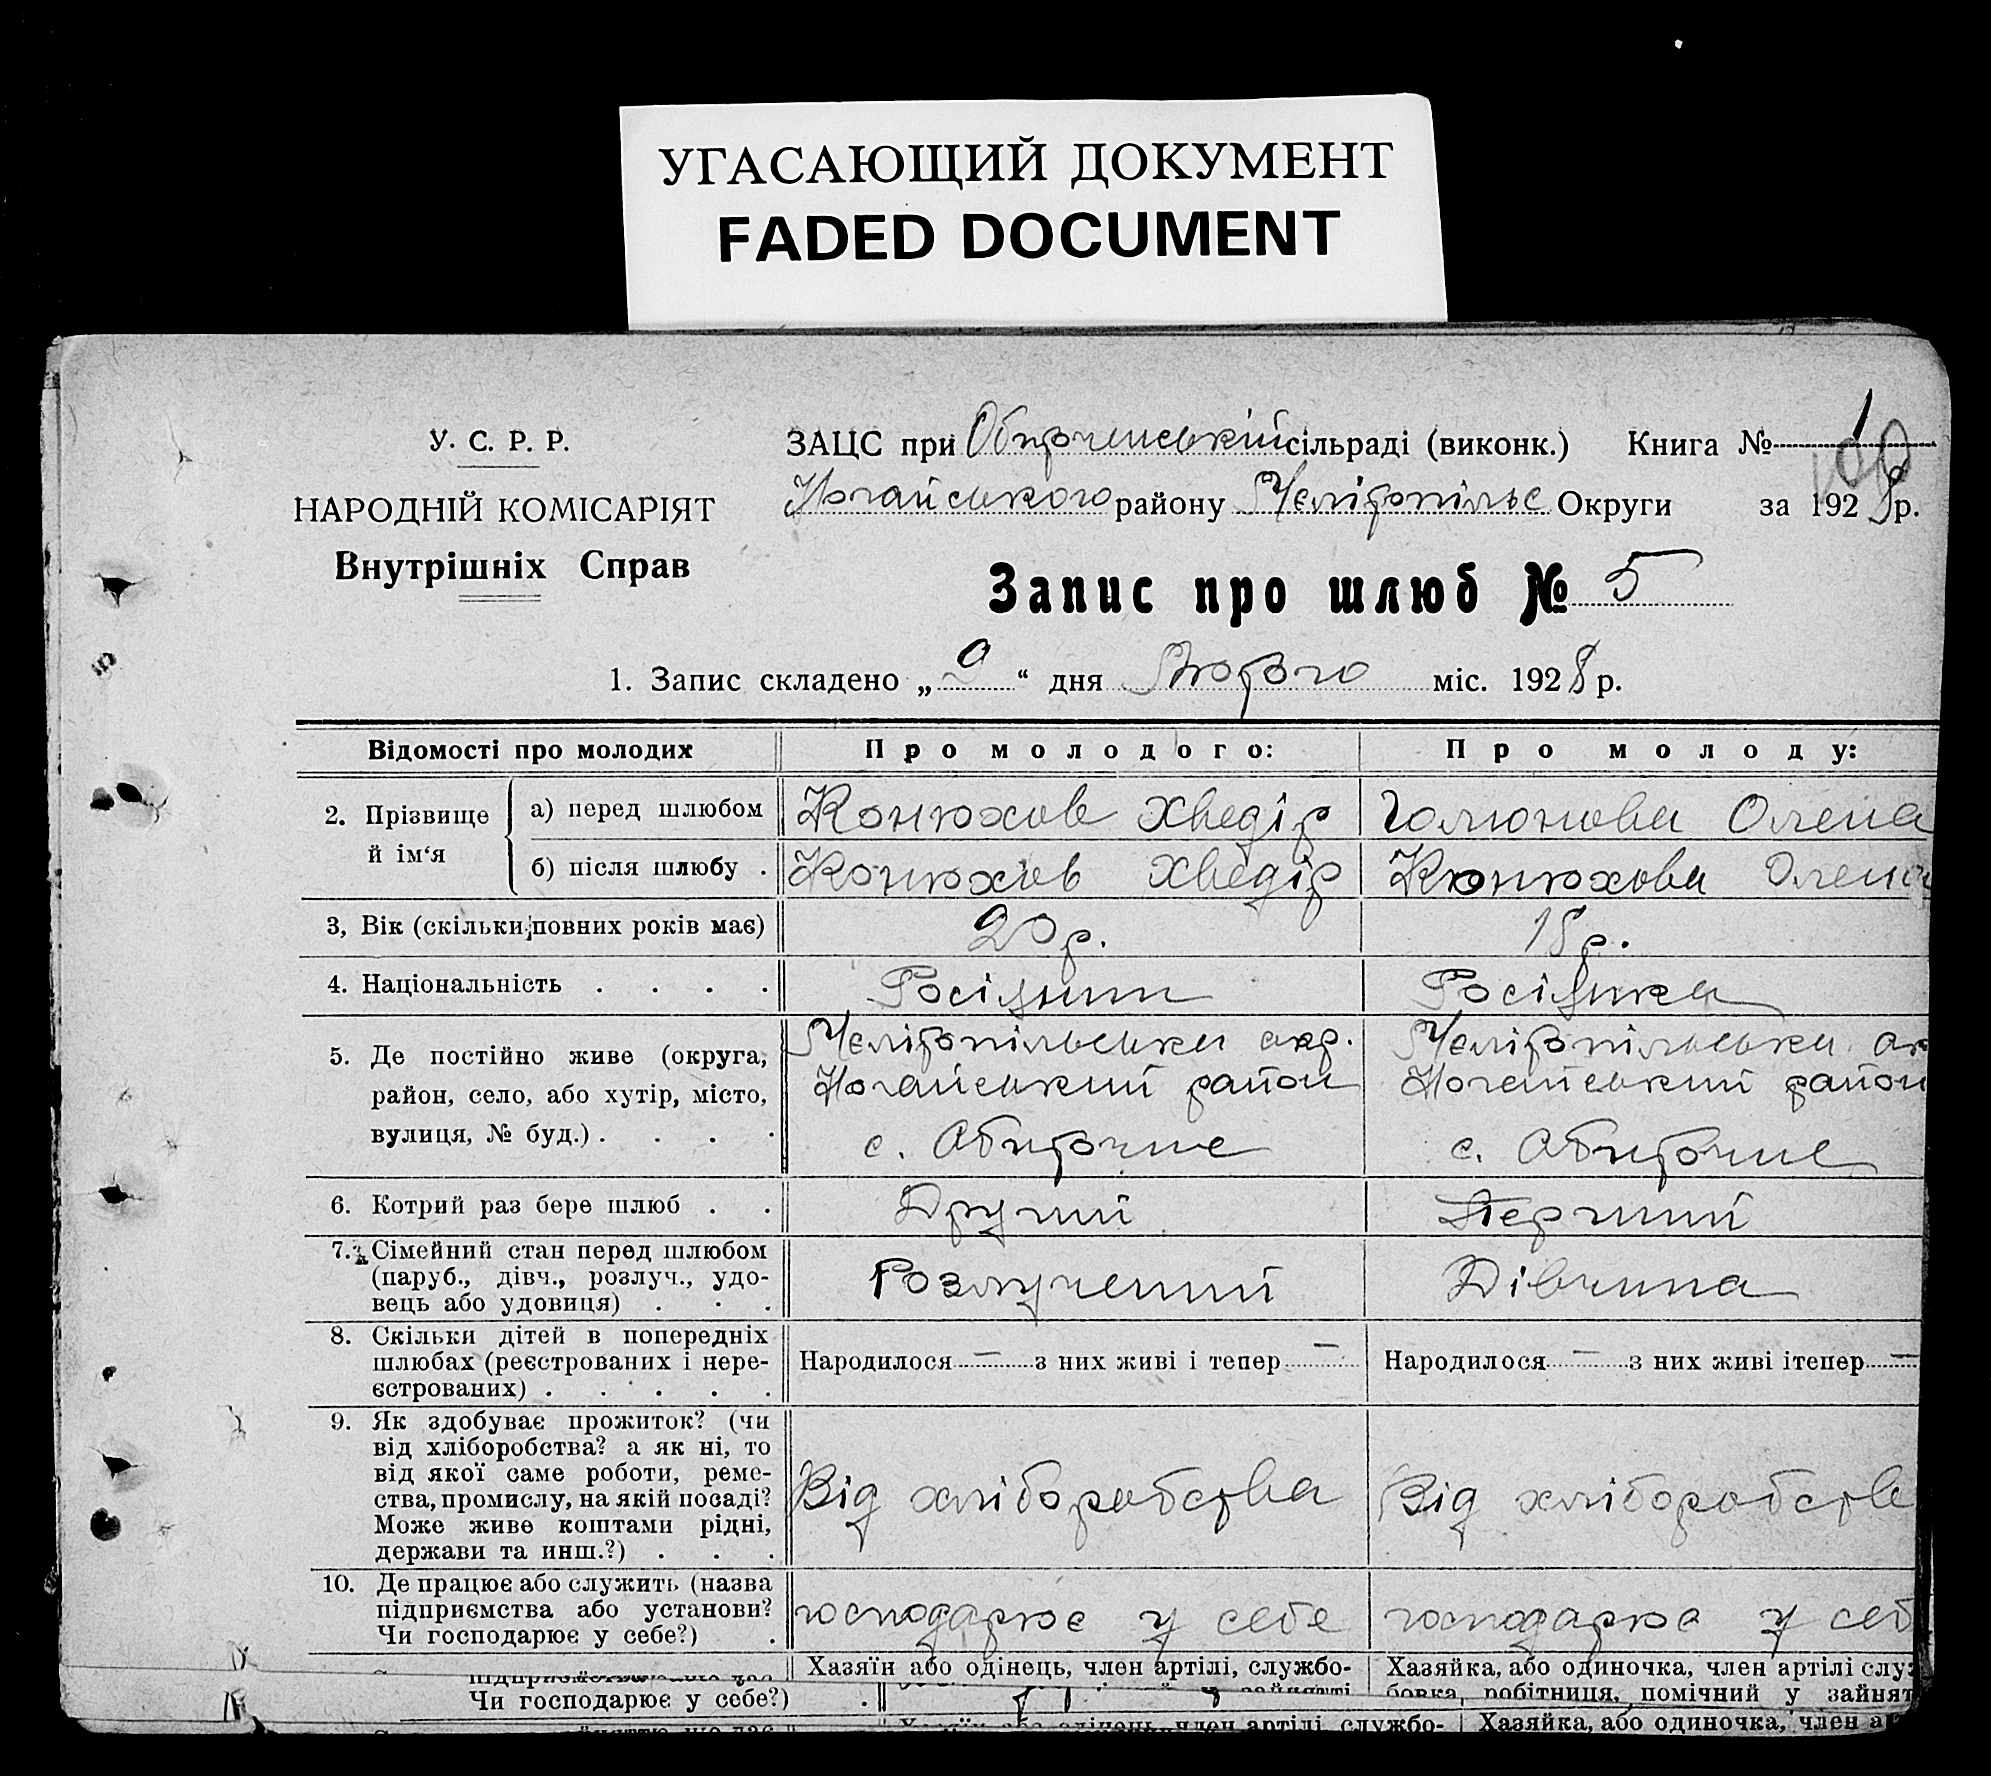 УГАСАЮЩИЙ ДОКУМЕНТ
FADED DOCUMENT
У. С. Р. Р.
НАРОДНІЙ КОМІСАРІЯТ
Внутрішніх Справ
ЗАЦС при сільраді (виконк.) Книга № 1
Ногайського району Меліtопільс Округи за 1928 р.
Запис про шлюб № 5
1. Запис складено „ “ дня Лютого міс. 1928 р.
Відомості про молодих Про молодого: Про молоду:
2. Прізвище й ім‘я
а) перед шлюбом Конюхов Хведір Голюнова Олена
б) після шлюбу . Конюхов Хведір Конюхова Олена
3, Вік (скільки повних років має) 20 р. 18 р.
4. Національність . . . . Росіянин Росіянка
5. Де постійно живе (округа,
район, село, або хутір, місто,
вулиця, № буд.) . . . .
Мелітопільська окр.
Ногайський район
с. Обиточне
Мелітопільська ок
Ногайський район
с. Обиточне
6. Котрий раз бере шлюб . . Другий Перший
7. Сімейний стан перед шлюбом
(паруб., дівч., розлуч., удо-
вець або удовиця) . . .
Розлучений Дівчина
8. Скільки дітей в попередніх
шлюбах (реєстрованих і нере-
єстрованих) . . . . .
Народилося — з них живі і тепер — Народилося — з них живі ітепер —
9. Як здобуває прожиток? (чи
від хліборобства? а як ні, то
від якої саме роботи, реме-
ства, промислу, на якій посаді?
Може живе коштами рідні,
держави та инш.?) . . .
Від хліборобства Від хліборобств
10. Де працює або служить (назва
підприємства або установи?
Чи господарює у себе?) .
господарює у себе господарює у себ
Хазяїн або одінець, член артілі, службо- Хазяйка, або одиночка, член артілі служ
бовка, робітниця, помічний у зайнят
Чи господарює у себе?) .
член артілі, службо- Хазяйка, або одиночка, член а